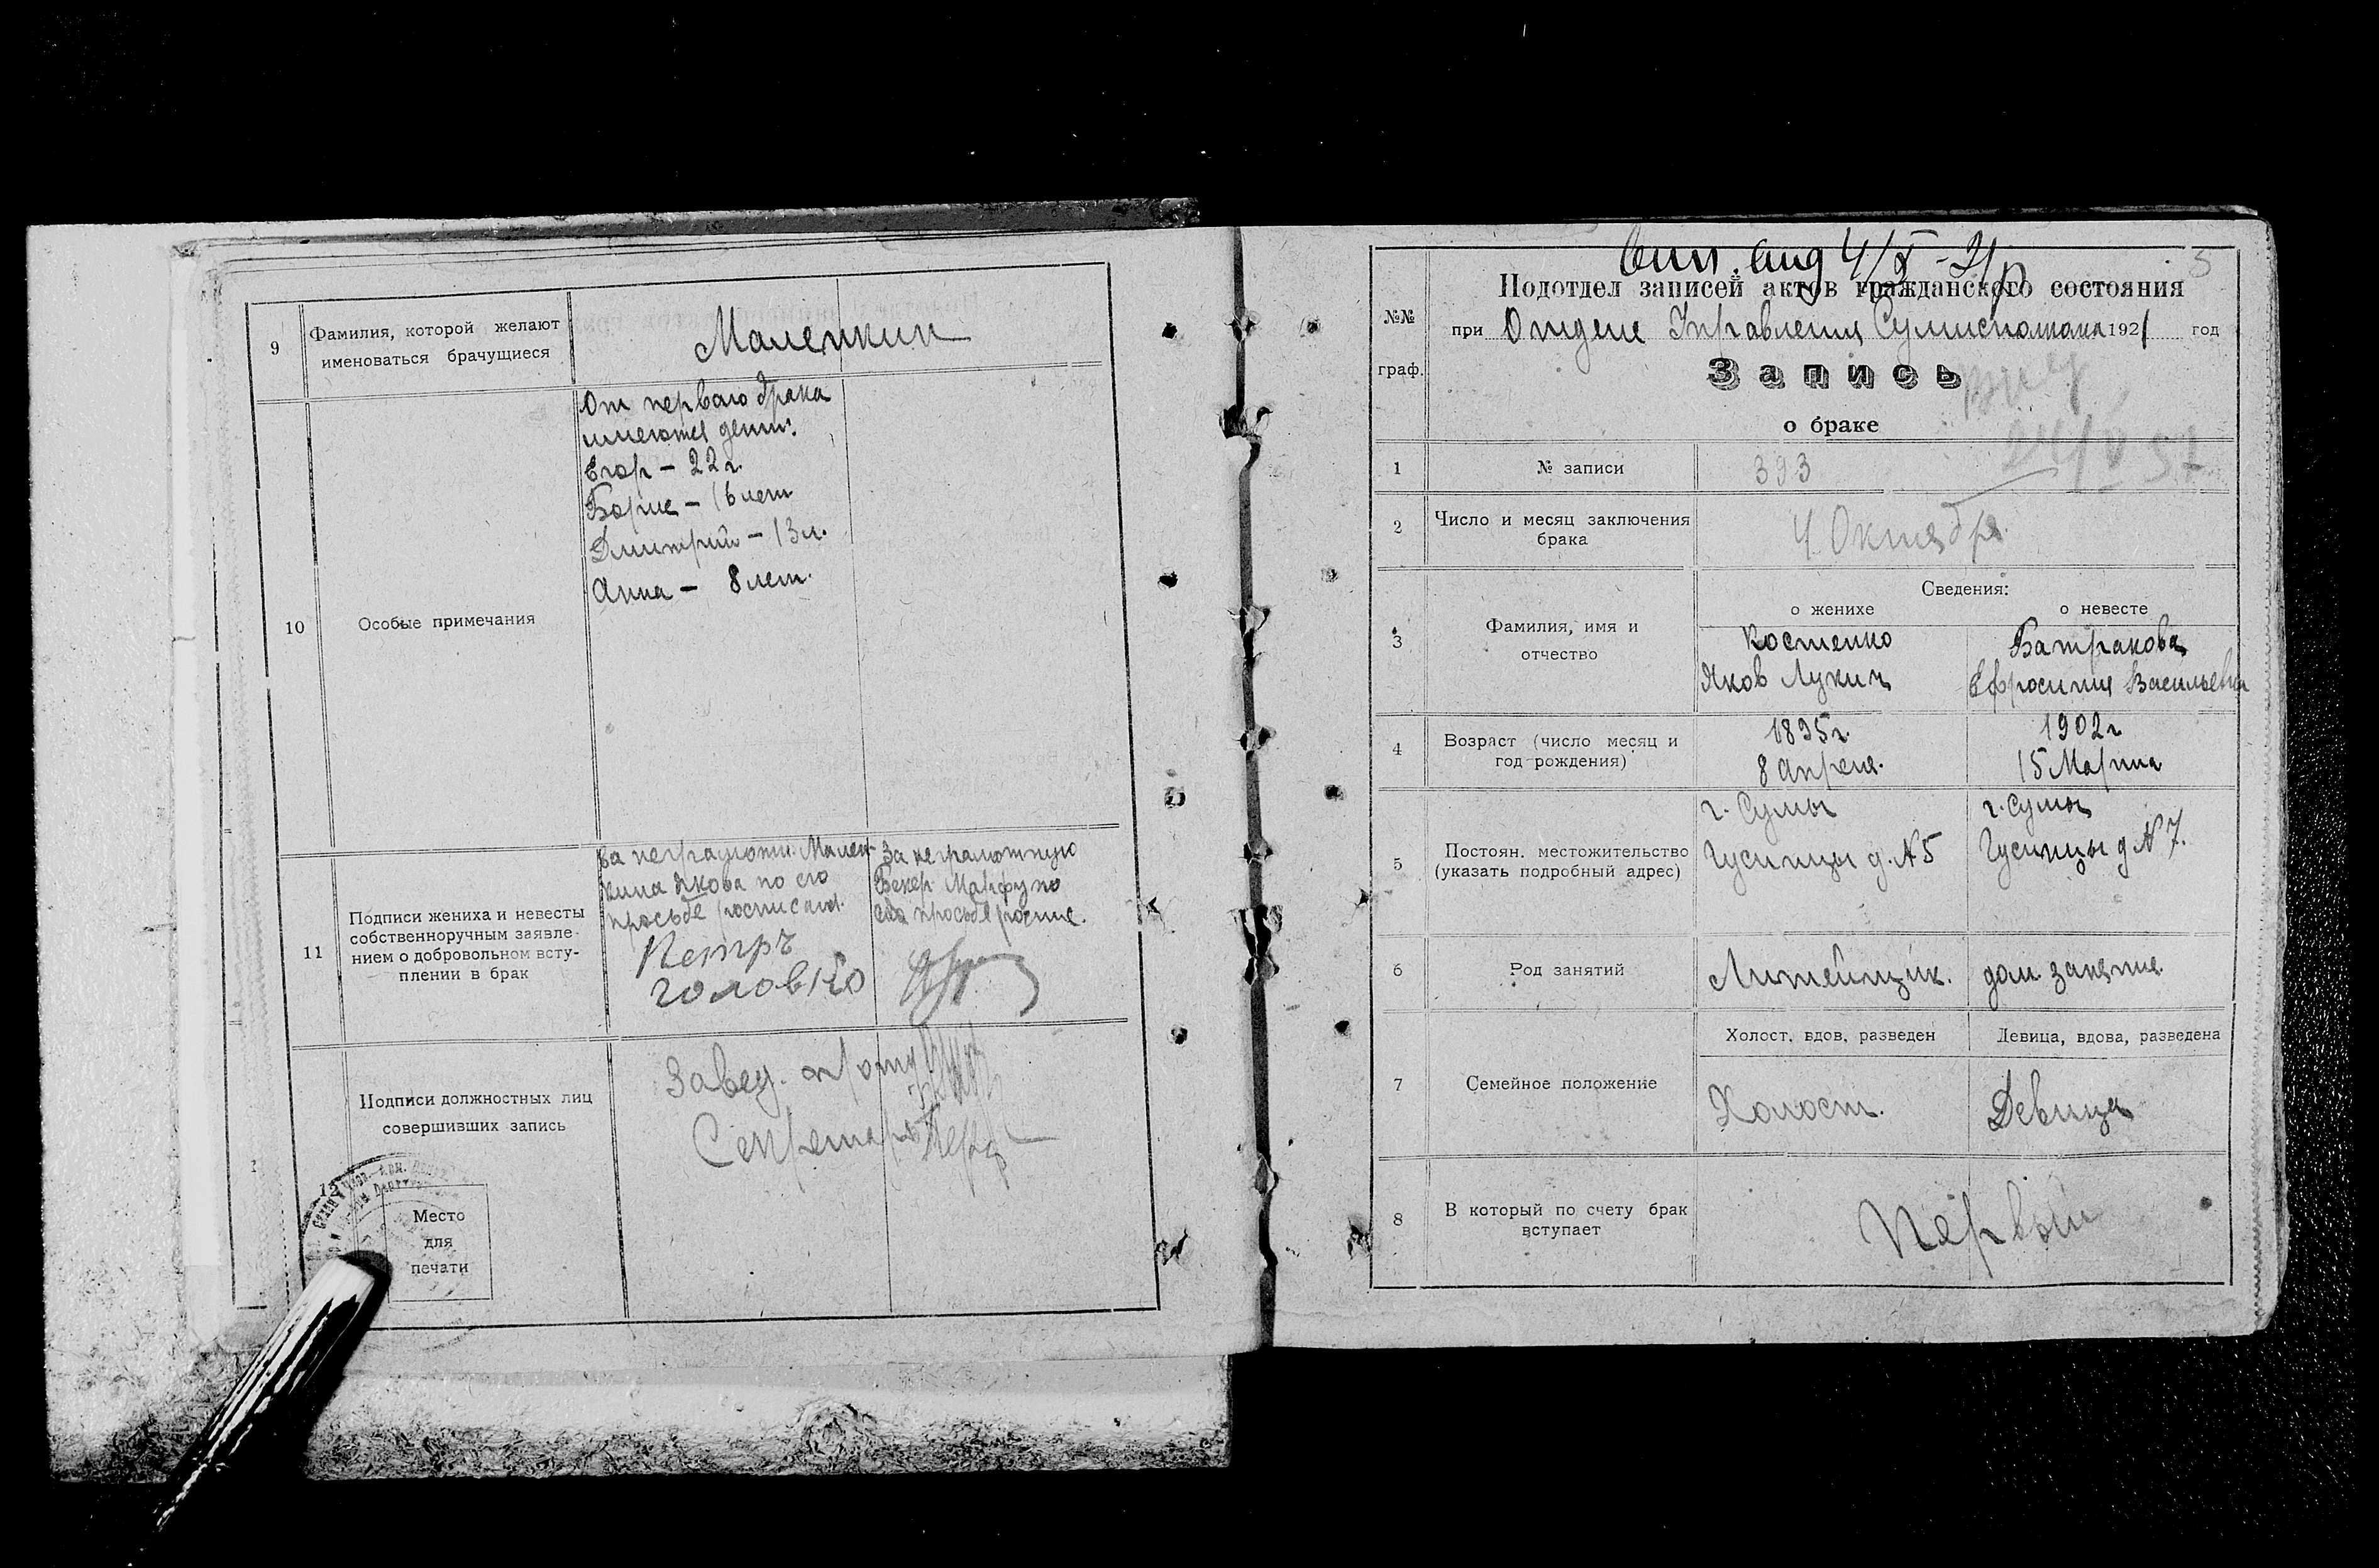 9
Фамилия, которой желают
именоваться брачущиеся
Маленкин
10
Особые примечания
От перваго брака
имеются дети:
Егор – 22 г.
Борис – 16 лет
Дмитрий – 13 л.
Анна – 8 лет.
11
Подписи жениха и невесты
собственноручным заявле-
нием о добровольном всту-
плении в брак
За неграмотн. Мален-
кина Якова по его
просьбе росписался
Петръ
головко
За неграмотную
Бекер Марфу по
ея просьбе роспис.
Подписи должностных лиц
совершивших запись
Завед. п/отд
Секретарь
12
Место
для
печати
4/X - 21 р
5
№№
граф.
Подотдел записей актов гражданского состояния
при Отделе Управления Сумисполкома 1921 год
Запись
о браке
1
№ записи
393
2
Число и месяц заключения
брака
4 Октября
3
Фамилия, имя и
отчество
Сведения:
о женихе
о невесте
Костенко
Яков Лукич
Батракова
Ефросиния Васильевна
4
Возраст (число месяц и
год рождения)
1895 г.
8 апреля.
1902 г
15 Марта
5
Постоян. местожительство
(указать подробный адрес)
г. Сумы
Гусинцы д. № 5
г. Сумы
Гусинцы д № 7.
6
Род занятий
Литейщик.
дом. занятие
7
Семейное положение
Холост, вдов, разведен
Девица, вдова, разведена
Холост.
Девица
8
В который по счету брак
вступает
Первый